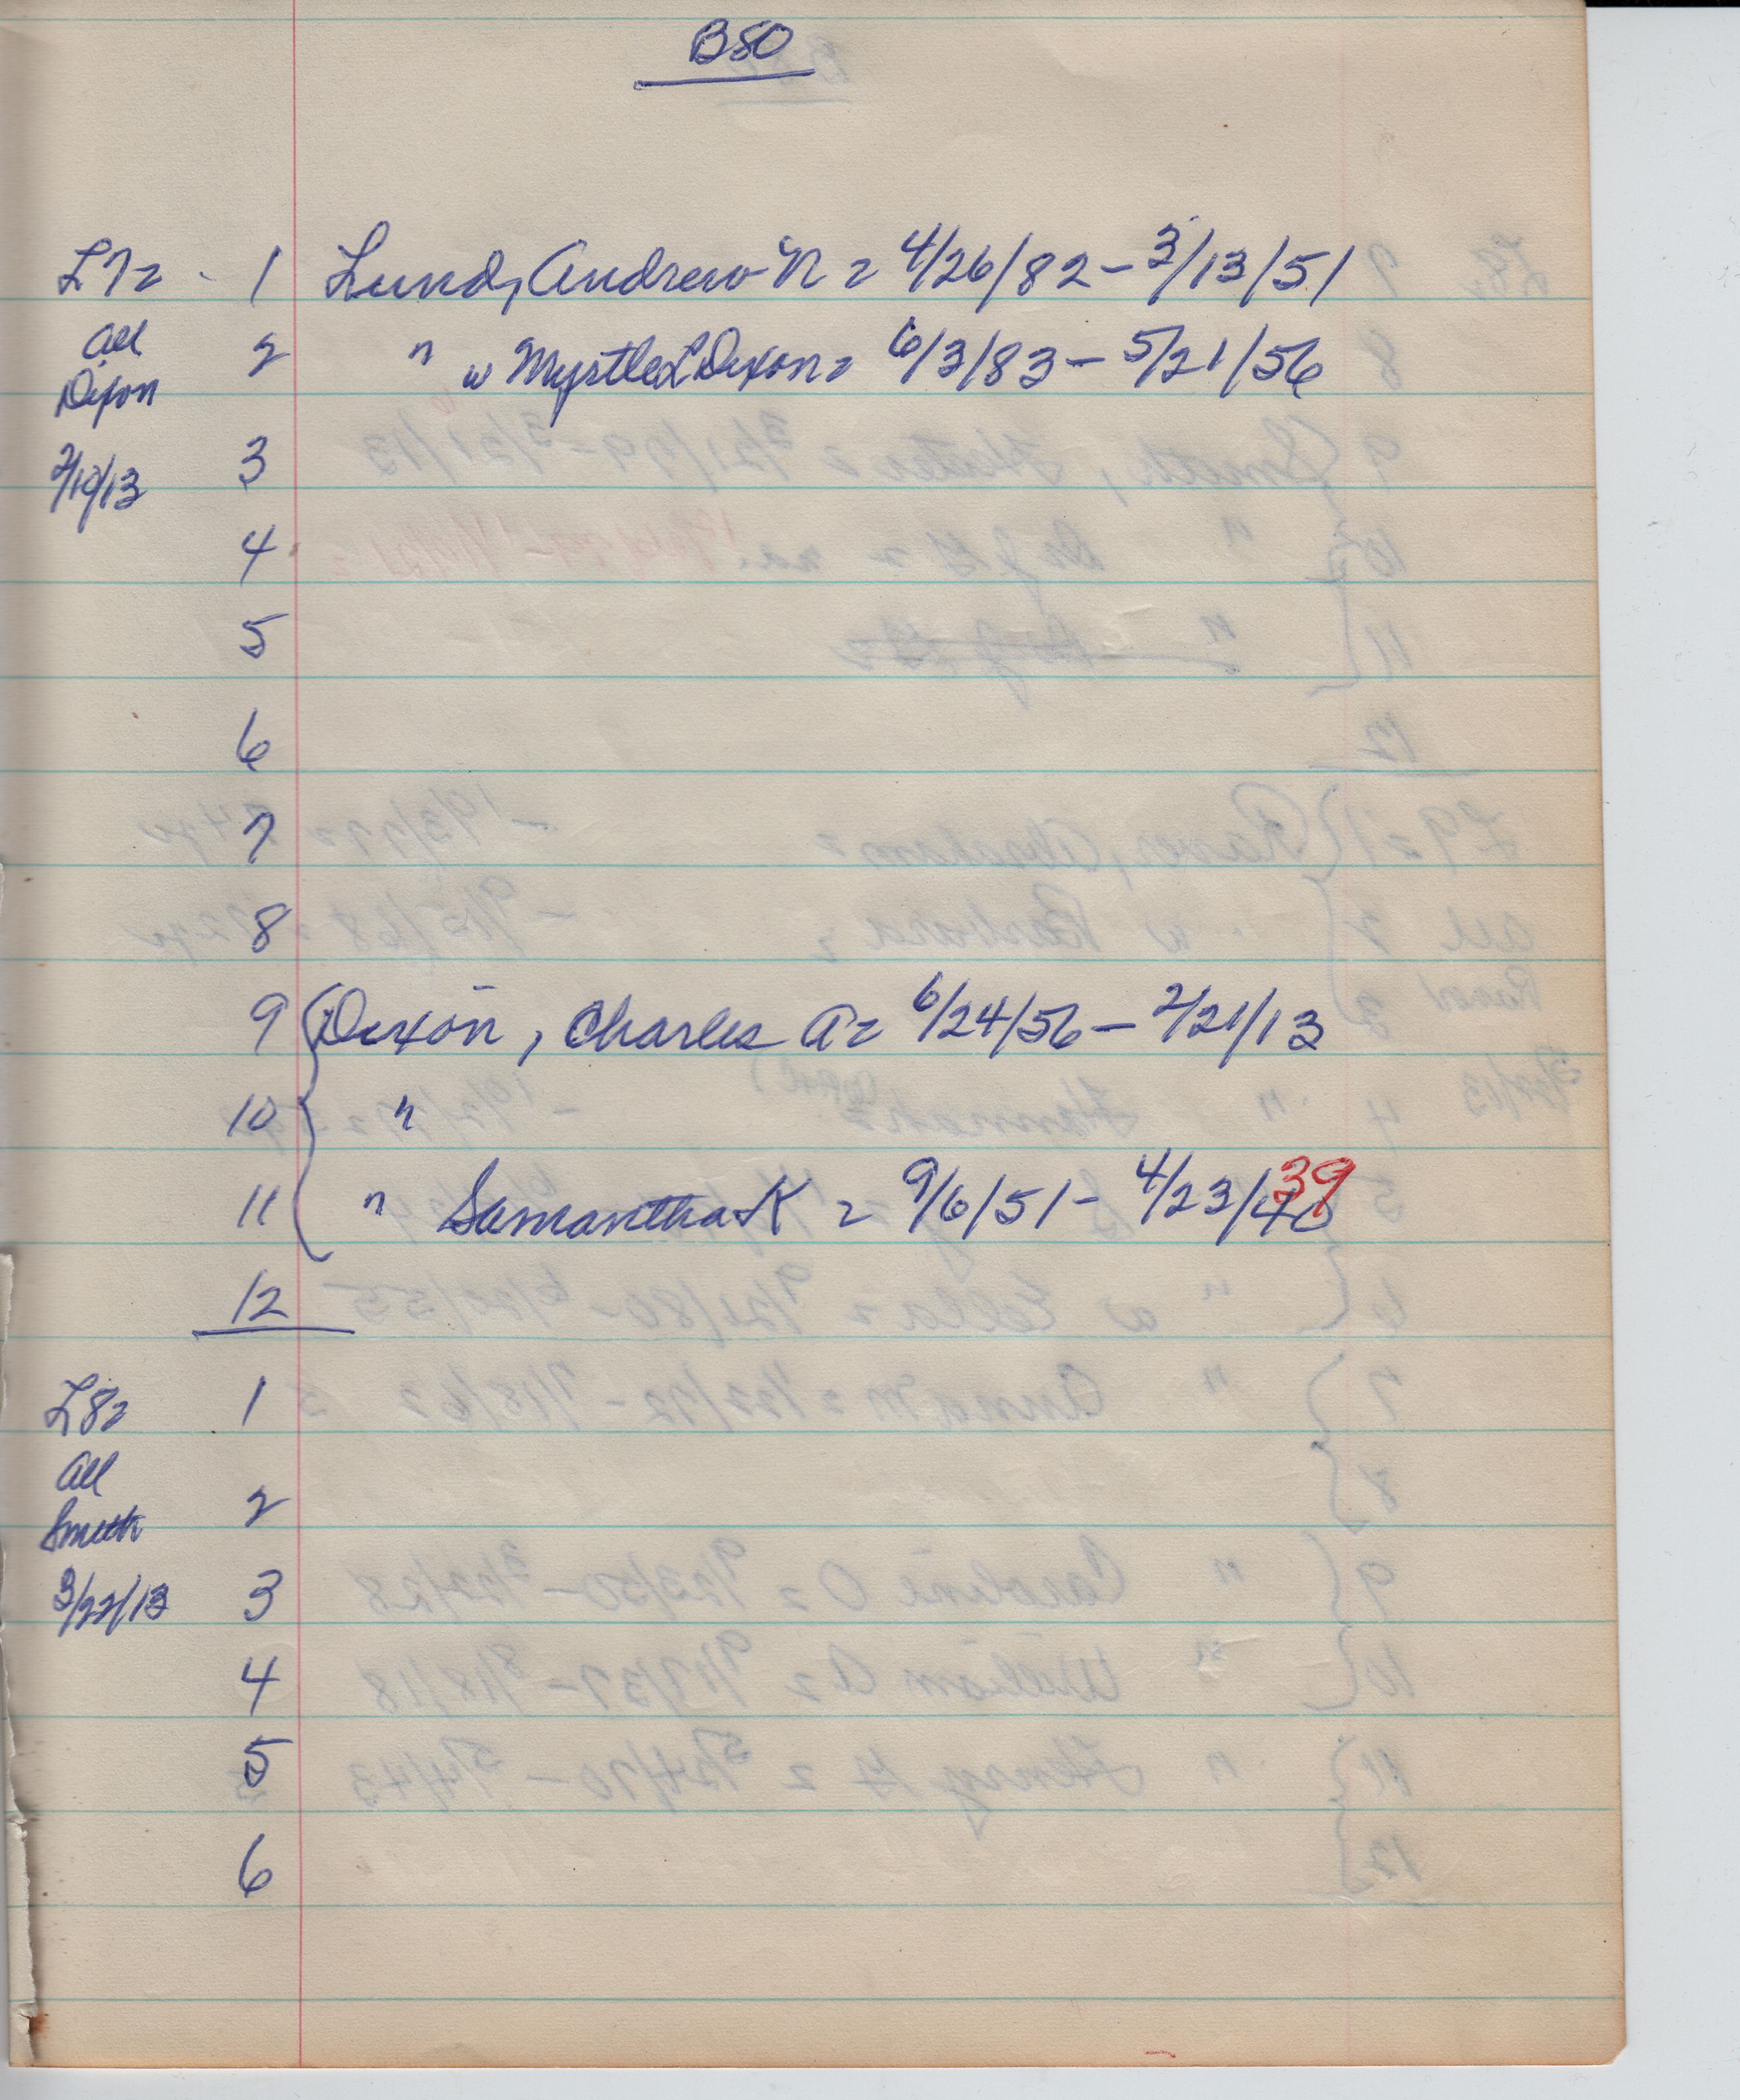 B50
L7= 1 Lund, Andrew N = 4/26/82 – 3/13/51
All 2 " w Myrtle L Dixon = 6/3/83 – 5/21/56
Dixon
2/10/13 3
4
5
6
7
8
9 Dixon, Charles A = 6/24/56 – 2/21/13
10 "
11 " Samantha K = 9/6/51 – 4/23/40 39
12
L8= 1
All
2
Smith
3/22/13 3
4
5
6